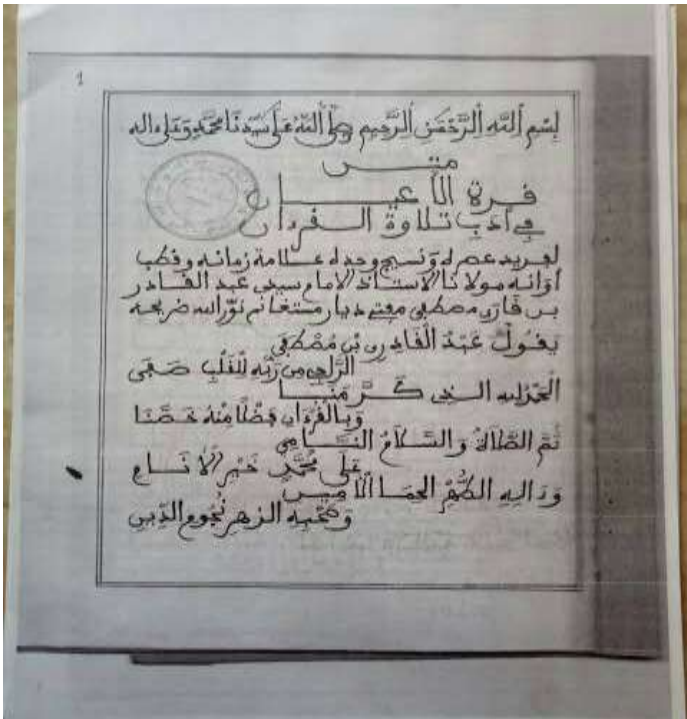 1
بِسْمِ اللَّهِ الرَّحْمَنِ الرَّحِيمِ وَصَلَّى اللَّهُ عَلَى سَيِّدِنَا مُحَمَّدٍ وَعَلَى ءاله
متن
قرة الأعيان
في ءادب تلاوة القرءان
لفريد عصره ونسيج وحده علامة زمانه وقطب
أوانه مولانا الاستاذ الامام سيدي عبد القادر
بن قارة مصطفى مفتي ديار مستغانم نور الله ضريحه
يَقُولُ عَبْدُ الْقَادِرِ بْنُ مُصْطَفَى
الرَّاجِي مِن رَّبِّهِ لِلْقَلْبِ صَفَى
الْحَمْدُ لله الذي كَرَّمَنَا
وَبِالْقُرْءَانِ فَضْلًا مِنْهُ خَصَّنَا
ثُمَّ الصَّلَاةُ وَالسَّلَامُ النَّامِي
عَلَى مُحَمَّدٍ خَيْرِ الْأَنَامِ
وَءَالِهِ الطُّهْرِ الحمَا الْآمِين
وَصَحْبِهِ الزُّهْرِ نُجُومِ الدِّينِ